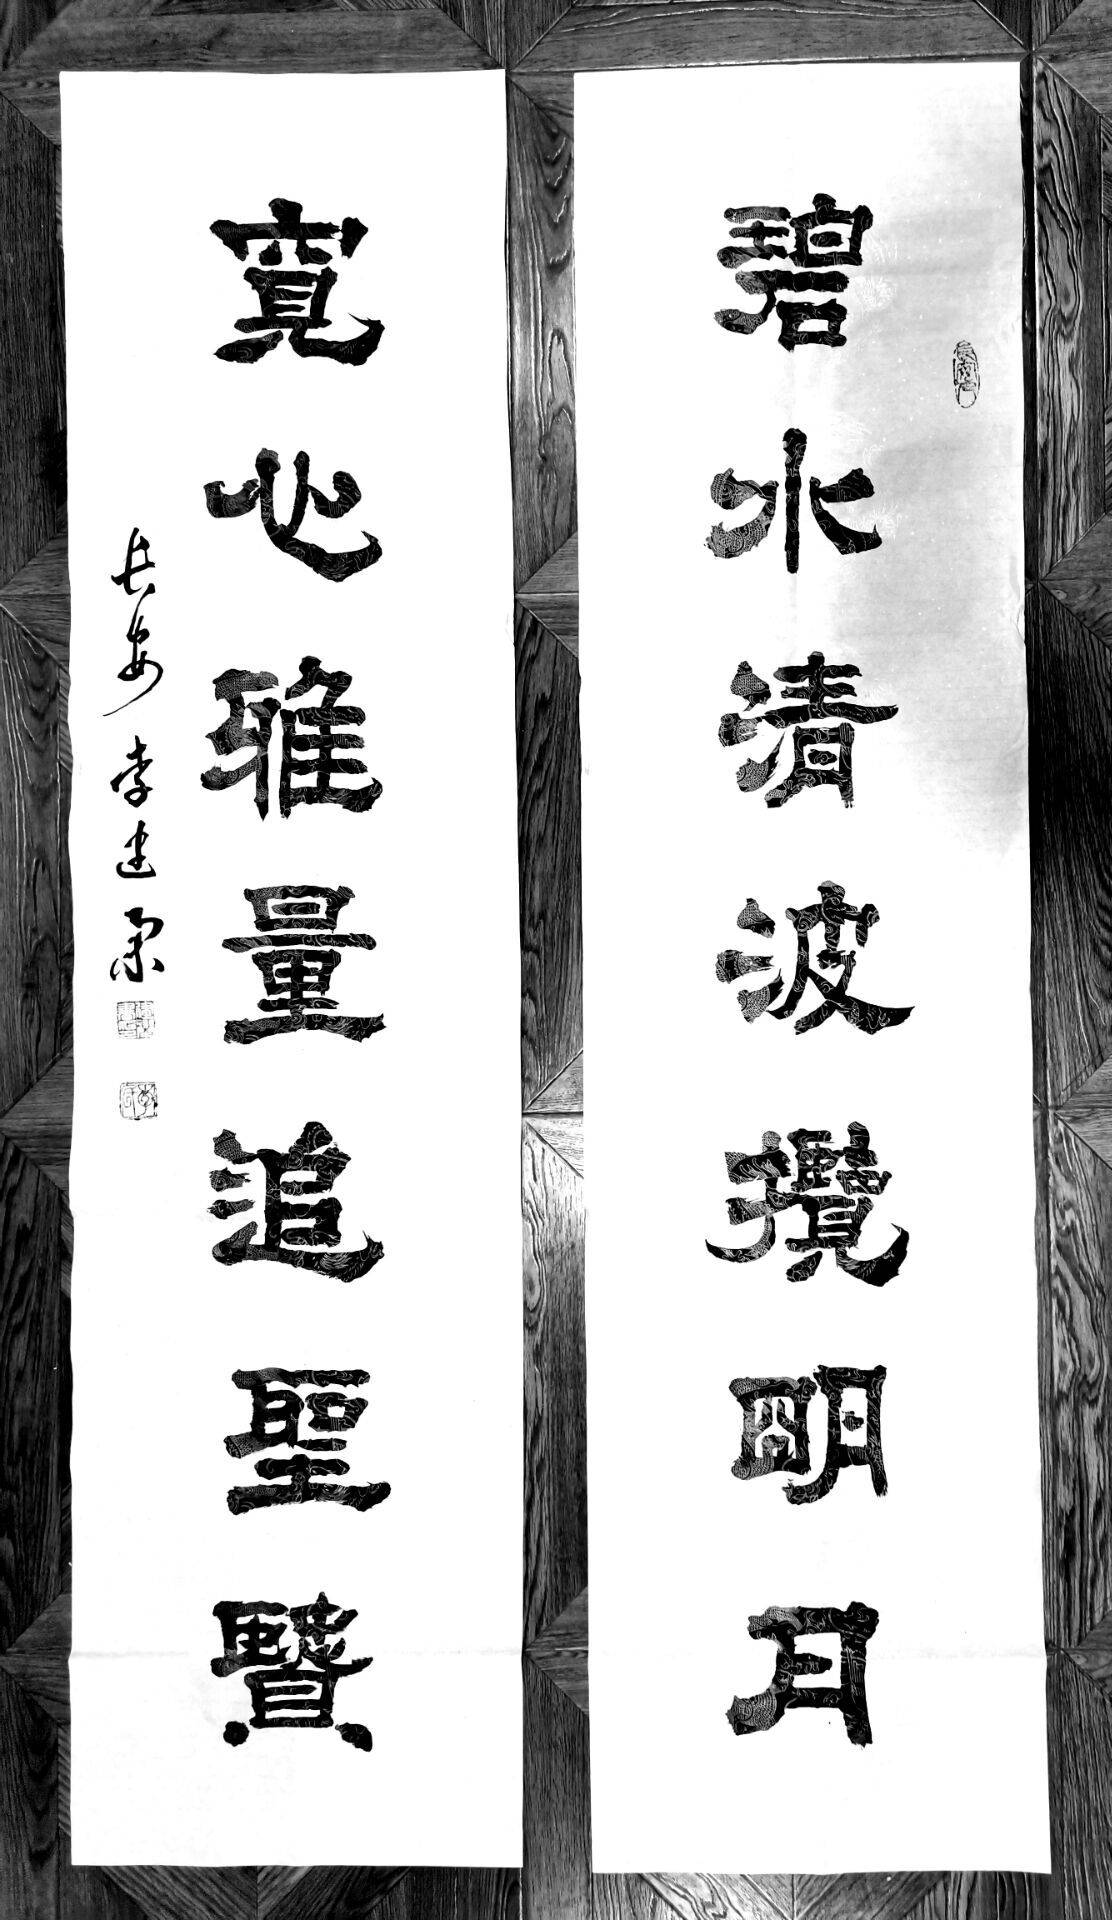 碧水清波攬明月
寬心雅量追聖賢
長安李建